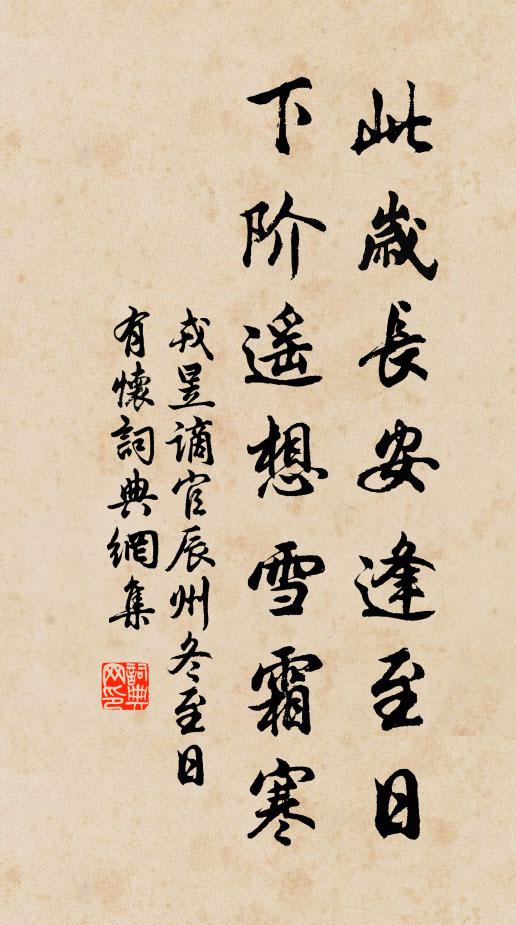 此歲長安逢至日
下阶遥想雪霜寒
戎昱谪官辰州冬至日
有懷詞典網集
詞典网印